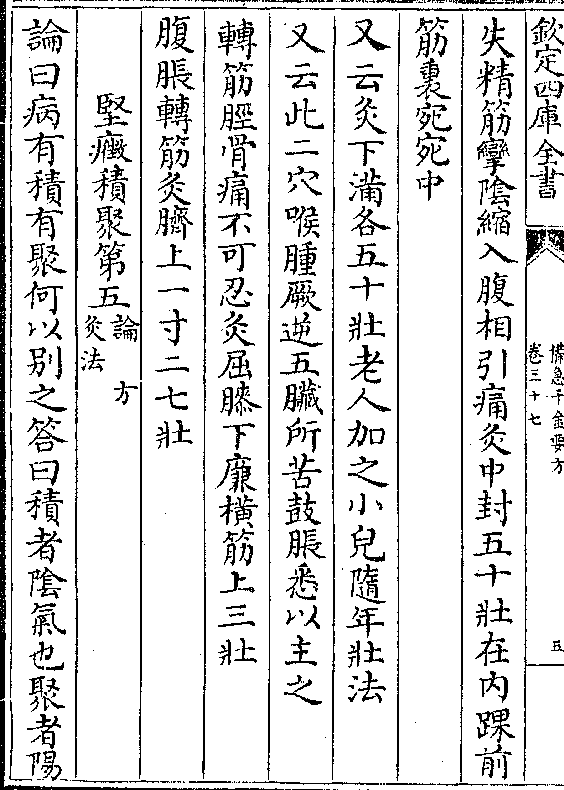 欽定四庫全書
備急千金要方
卷三十七
五
失精筋攣陰縮入腹相引痛灸中封五十壯在内踝前
筋裏宛宛中
又云灸下滿各五十壯老人加之小兒隨年壯法
又云此二穴喉腫厥逆五臟所苦鼓脹悉以主之
轉筋脛骨痛不可忍灸屈膝下廉橫筋上三壯
腹脹轉筋灸臍上一寸二七壯
堅癥積聚第五論 方
灸法
論曰病有積有聚何以别之答曰積者陰氣也聚者陽